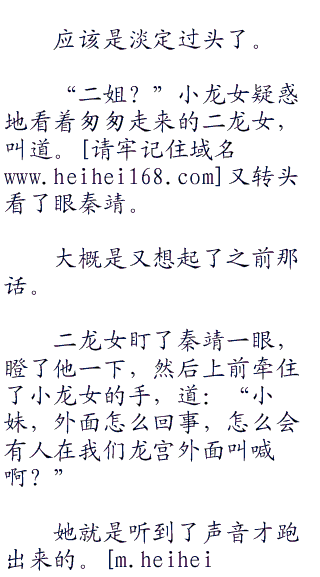 应该是淡定过头了。
“二姐？”小龙女疑惑
地看着匆匆走来的二龙女，
叫道。[请牢记住域名
www.heihei168.com]又转头
看了眼秦靖。
大概是又想起了之前那
话。
二龙女盯了秦靖一眼，
瞪了他一下，然后上前牵住
了小龙女的手，道：“小
妹，外面怎么回事，怎么会
有人在我们龙宫外面叫喊
啊？”
她就是听到了声音才跑
出来的。[m.heihei